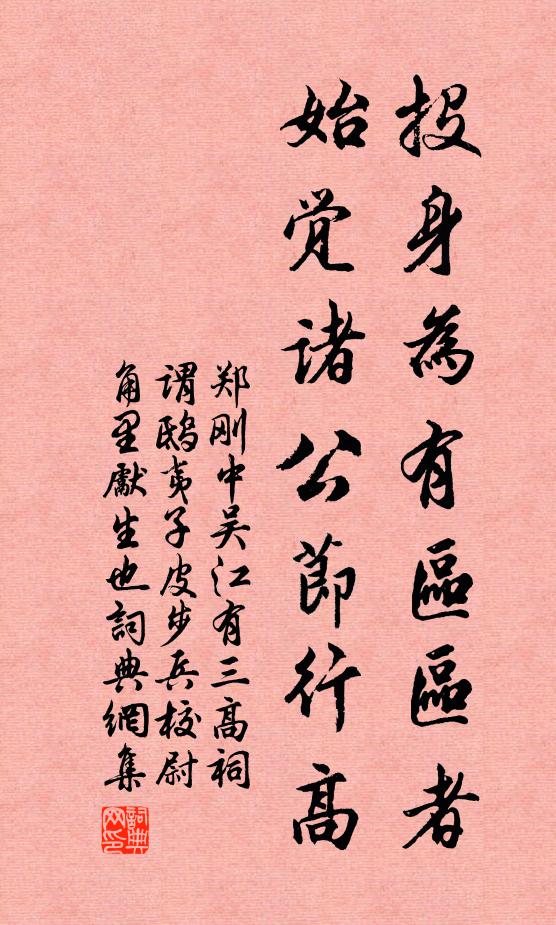 投身為有區區者
始覺诸公節行高
郑刚中吴江有三高祠
谓鸱夷子皮步兵校尉
角里處生也詞典網集
詞典网印